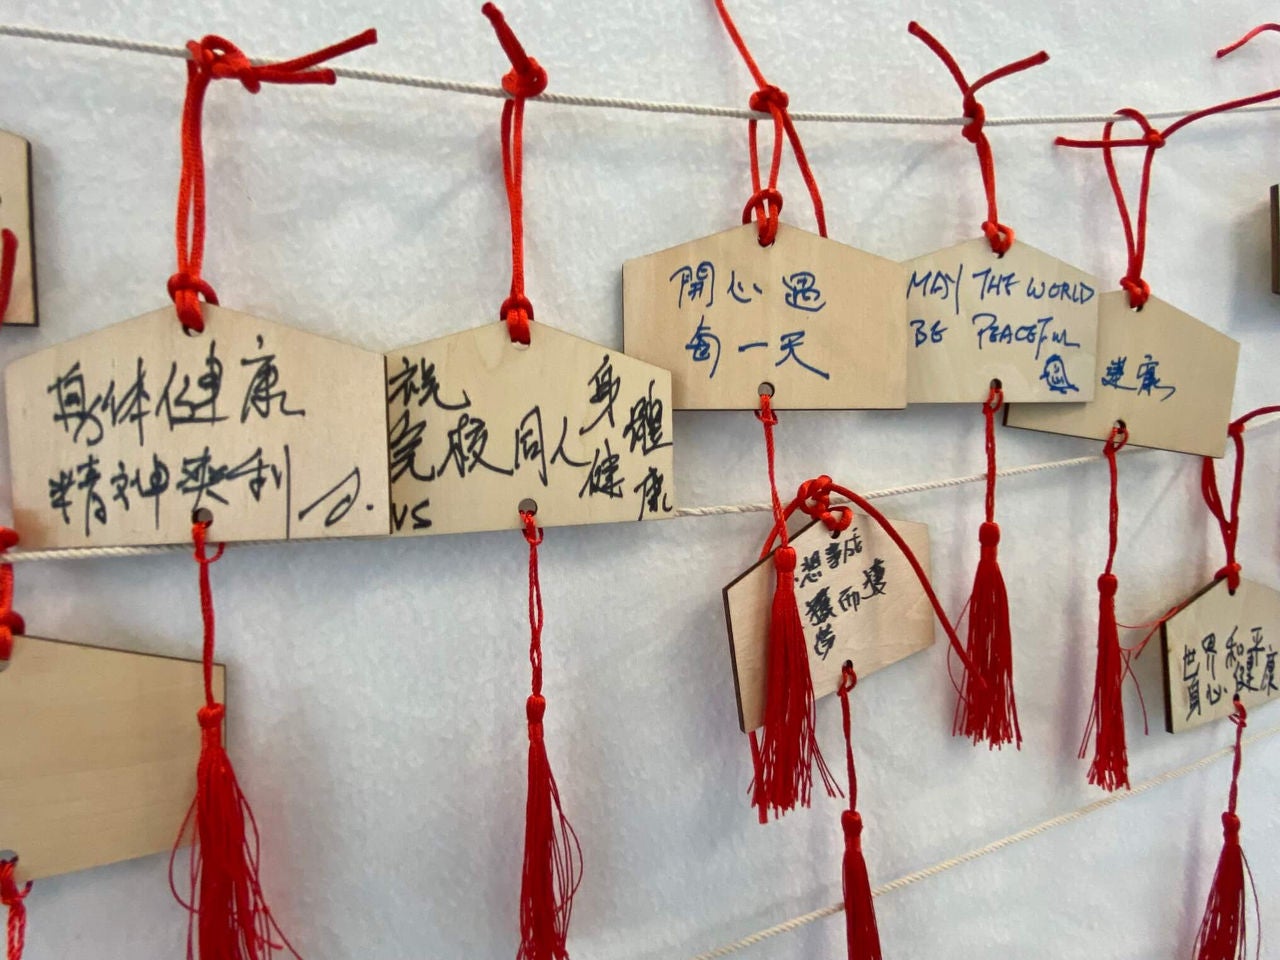 身体健康
精神爽利
祝
完校同人
身體
健康
VS
開心過
每一天
MAY THE WORLD
BE PEACEFUL
健康
想事成
獲而獲
夢
世界和平
身心健康